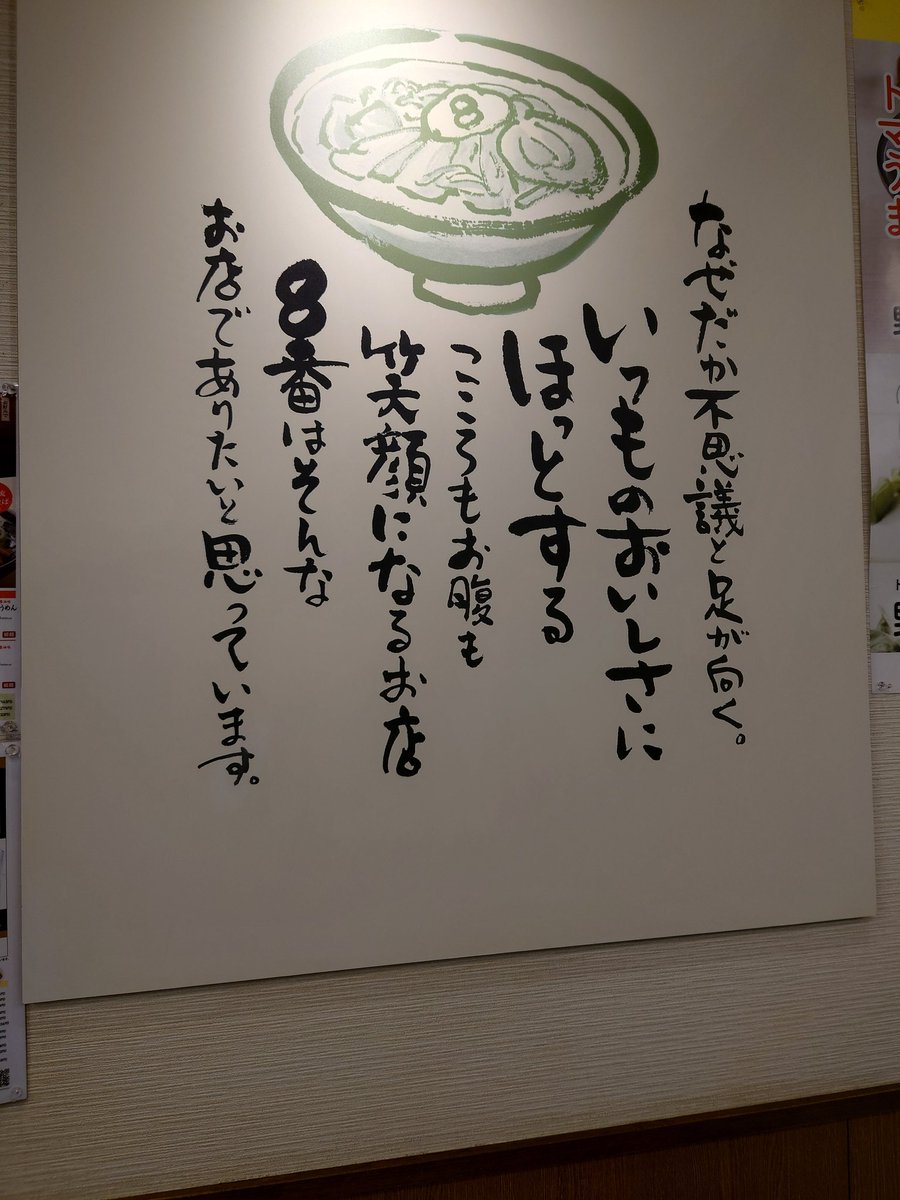 8
なぜだか不思議と足が向く。
いつものおいしさに
ほっとする
こころもお腹も
笑顔になるお店
8番はそんな
お店でありたいと思っています。